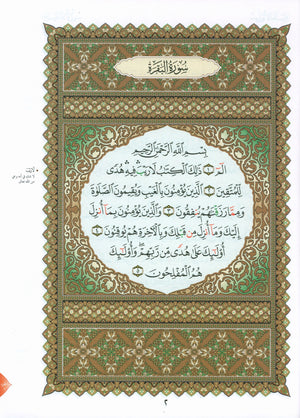 سُورَةُ البَقَرَةِ
بِسْمِ اللَّهِ الرَّحْمَٰنِ الرَّحِيمِ
الٓمٓ ۝١ ذَٰلِكَ الْكِتَٰبُ لَا رَيْبَ ۛ فِيهِ ۛ هُدًى
لِّلْمُتَّقِينَ ۝٢ الَّذِينَ يُؤْمِنُونَ بِالْغَيْبِ وَيُقِيمُونَ الصَّلَوٰةَ
وَمِمَّا رَزَقْنَٰهُمْ يُنفِقُونَ ۝٣ وَالَّذِينَ يُؤْمِنُونَ بِمَآ أُنزِلَ
إِلَيْكَ وَمَآ أُنزِلَ مِن قَبْلِكَ وَبِالْآخِرَةِ هُمْ يُوقِنُونَ ۝٤
أُو۟لَٰٓئِكَ عَلَىٰ هُدًى مِّن رَّبِّهِمْ ۖ وَأُو۟لَٰٓئِكَ
هُمُ الْمُفْلِحُونَ ۝٥
٢